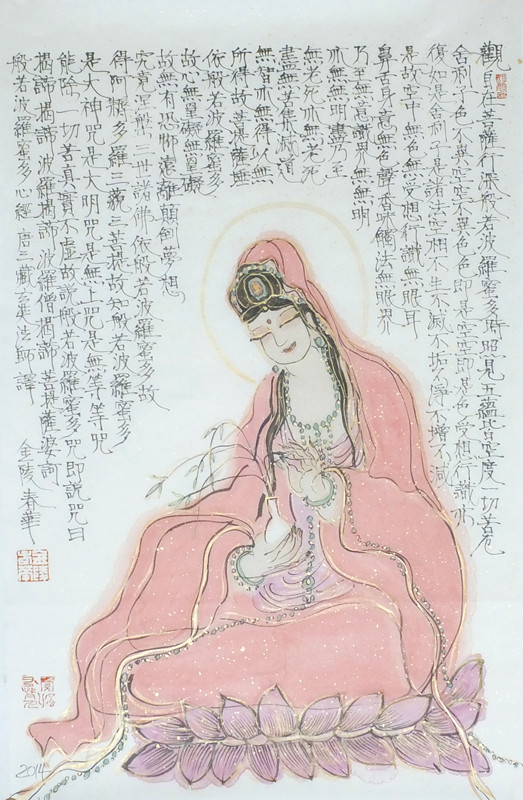 觀自在菩薩行深般若波羅蜜多時照見五蘊皆空度一切苦厄
舍利子色不異空空不異色色即是空空即是色受想行識亦
復如是舍利子是諸法空相不生不滅不垢不淨不增不減
是故空中無色無受想行識無眼耳
鼻舌身意無色聲香味觸法無眼界
乃至無意識界無無明
亦無無明盡乃至
無老死亦無老死
盡無苦集滅道
無智亦無得以無
所得故菩提薩埵
依般若波羅蜜多
故心無罣礙無罣礙
故無有恐怖遠離顛倒夢想
究竟涅槃三世諸佛依般若波羅蜜多故
得阿耨多羅三藐三菩提故知般若波羅蜜多
是大神咒是大明咒是無上咒是無等等咒
能除一切苦真實不虛故說般若波羅蜜多咒即說咒曰
揭諦揭諦波羅揭諦波羅僧揭諦菩提薩婆訶
般若波羅蜜多心經 唐三藏玄奘法師譯 金陵春華
2014